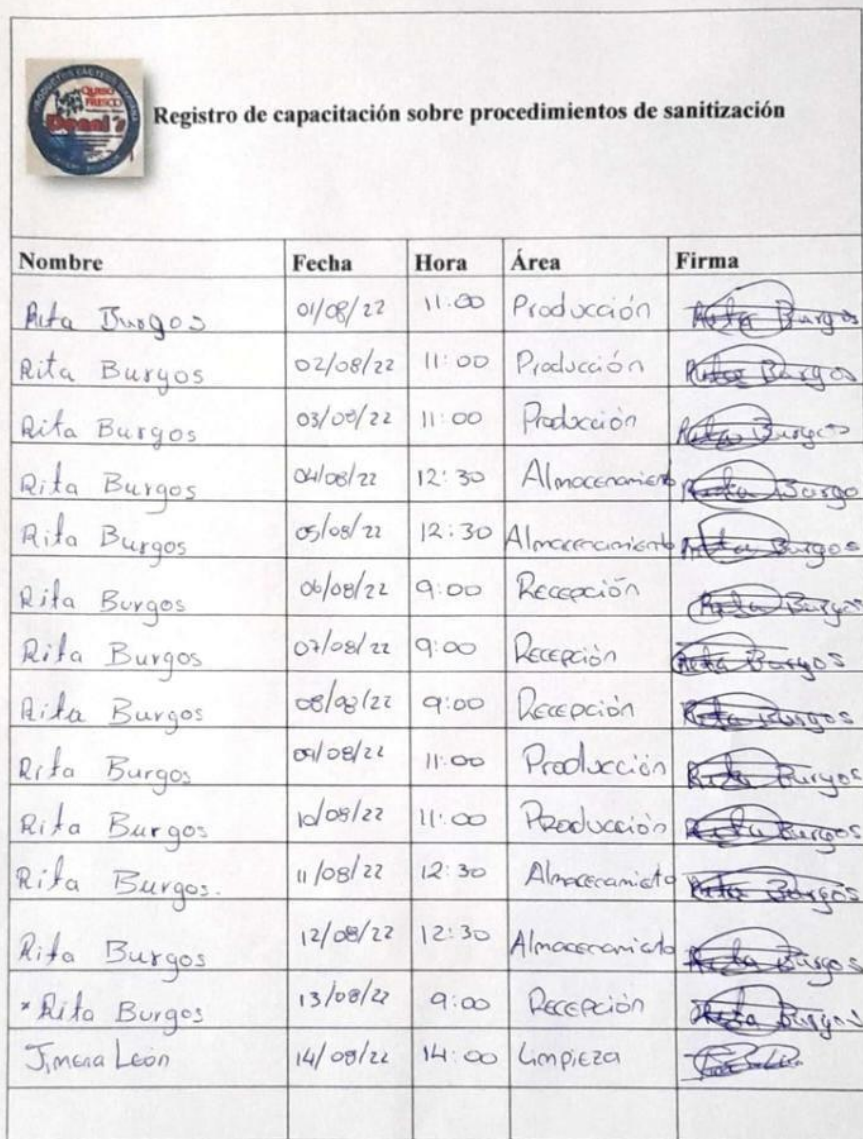 PRODUCTOS LÁCTEOS
QUESO
FRESCO
Registro de capacitación sobre procedimientos de sanitización
Nombre Fecha Hora Área Firma
Rita Burgos 01/08/22 11:00 Producción Rita Burgos
Rita Burgos 02/08/22 11:00 Producción Rita Burgos
Rita Burgos 03/08/22 11:00 Producción Rita Burgos
Rita Burgos 04/08/22 12:30 Almacenamiento Rita Burgo
Rita Burgos 05/08/22 12:30 Almacenamiento Rita Burgos
Rita Burgos 06/08/22 9:00 Recepción Rita Burgos
Rita Burgos 07/08/22 9:00 Recepción Rita Burgos
Rita Burgos 08/08/22 9:00 Recepción Rita Burgos
Rita Burgos 09/08/22 11:00 Producción Rita Burgos
Rita Burgos 10/08/22 11:00 Producción Rita Burgos
Rita Burgos. 11/08/22 12:30 Almacecamieto Rita Burgos
Rita Burgos 12/08/22 12:30 Almacenamieto Rita Burgos
* Rita Burgos 13/08/22 9:00 Recepción Rita Burgos
Jimena León 14/08/22 14:00 Limpieza